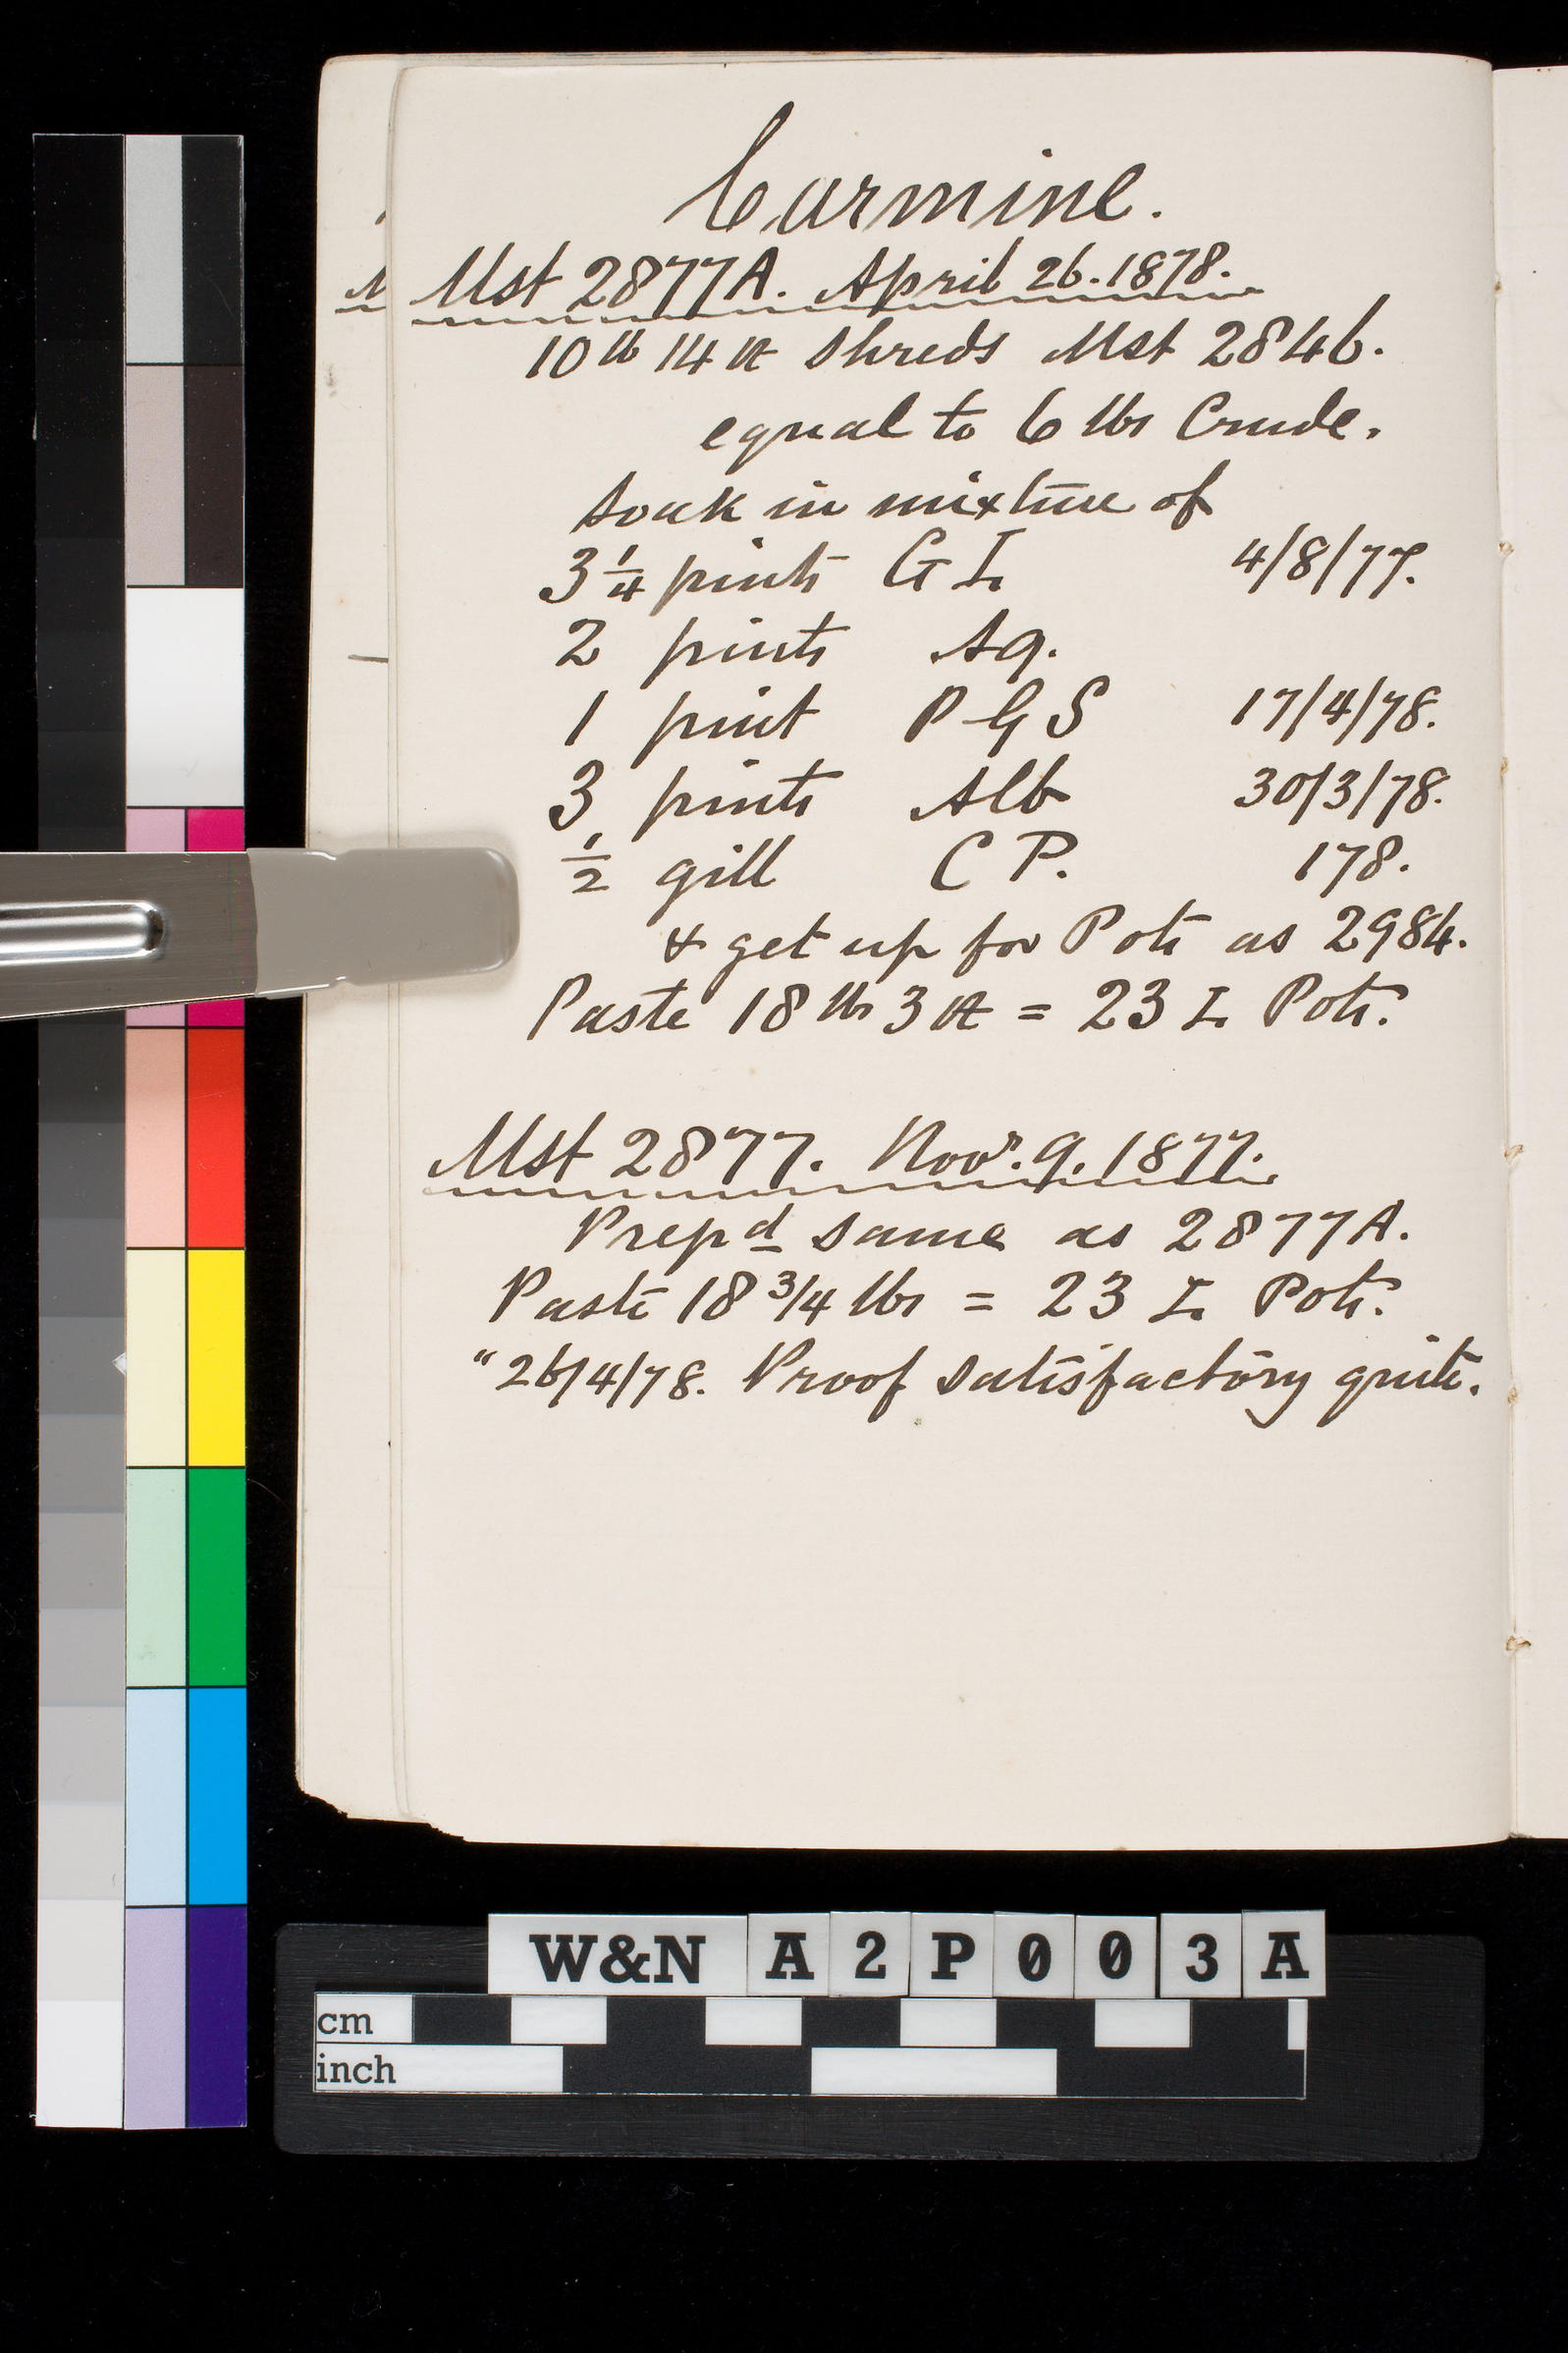 Carmine.
Mst 2877A. April 26. 1878.
10 lb 14 oz Shreds Mst 2846.
equal to 6 lbs Crude.
soak in mixture of
3 1/4 pints G I. 4/8/77.
2 pints Aq.
1 pint P G S 17/4/78.
3 pints Alb 30/3/78.
1/2 gill C P. 178.
& get up for Pots as 2984.
Paste 18 lbs 3 oz = 23 I. Pots.
Mst 2877. Novr. 9. 1877.
Prepd same as 2877A.
Paste 18 3/4 lbs = 23 I. Pots.
"26/4/78. Proof satisfactory quite.
W&N A2P003A
cm
inch